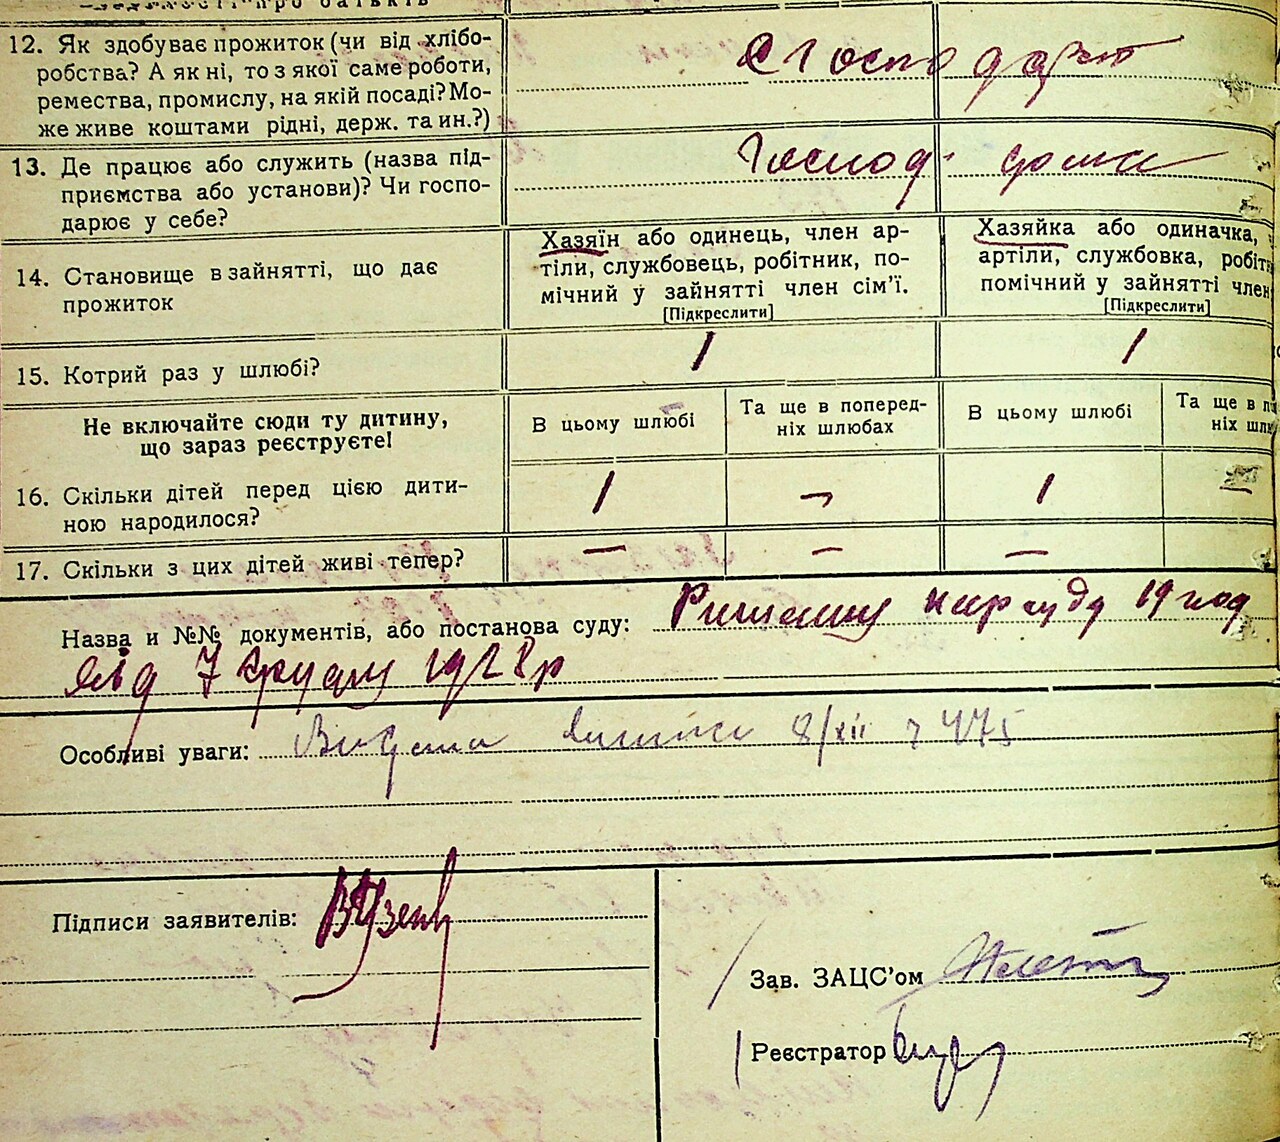 12. Як здобуває прожиток (чи від хлібо-
робства? А як ні, то з якої саме роботи,
ремества, промислу, на якій посаді? Мо-
же живе коштами рідні, держ. та ин.?)
з господарст
13. Де працює або служить (назва під-
приємства або установи)? Чи госпо-
дарює у себе?
Господ. дома
14. Становище в зайнятті, що дає
прожиток
Хазяїн або одинець, член ар-
тіли, службовець, робітник, по-
мічний у зайнятті член сім’ї.
[Підкреслити]
Хазяйка або одиначка,
артіли, службовка, робіт
помічний у зайнятті член
[Підкреслити]
15. Котрий раз у шлюбі?
1 1
Не включайте сюди ту дитину,
що зараз реєструєте!
В цьому шлюбі
Та ще в поперед-
ніх шлюбах
В цьому шлюбі
Та ще в по
ніх шлю
16. Скільки дітей перед цією дити-
ною народилося?
1 — 1 —
17. Скільки з цих дітей живі тепер?
— — —
Назва и №№ документів, або постанова суду: нарсуду 19
від 7 грудня 1928 р
Особливі уваги: Видана 8/xii 475
Підписи заявителів:
Зав. ЗАЦС’ом
Реєстратор